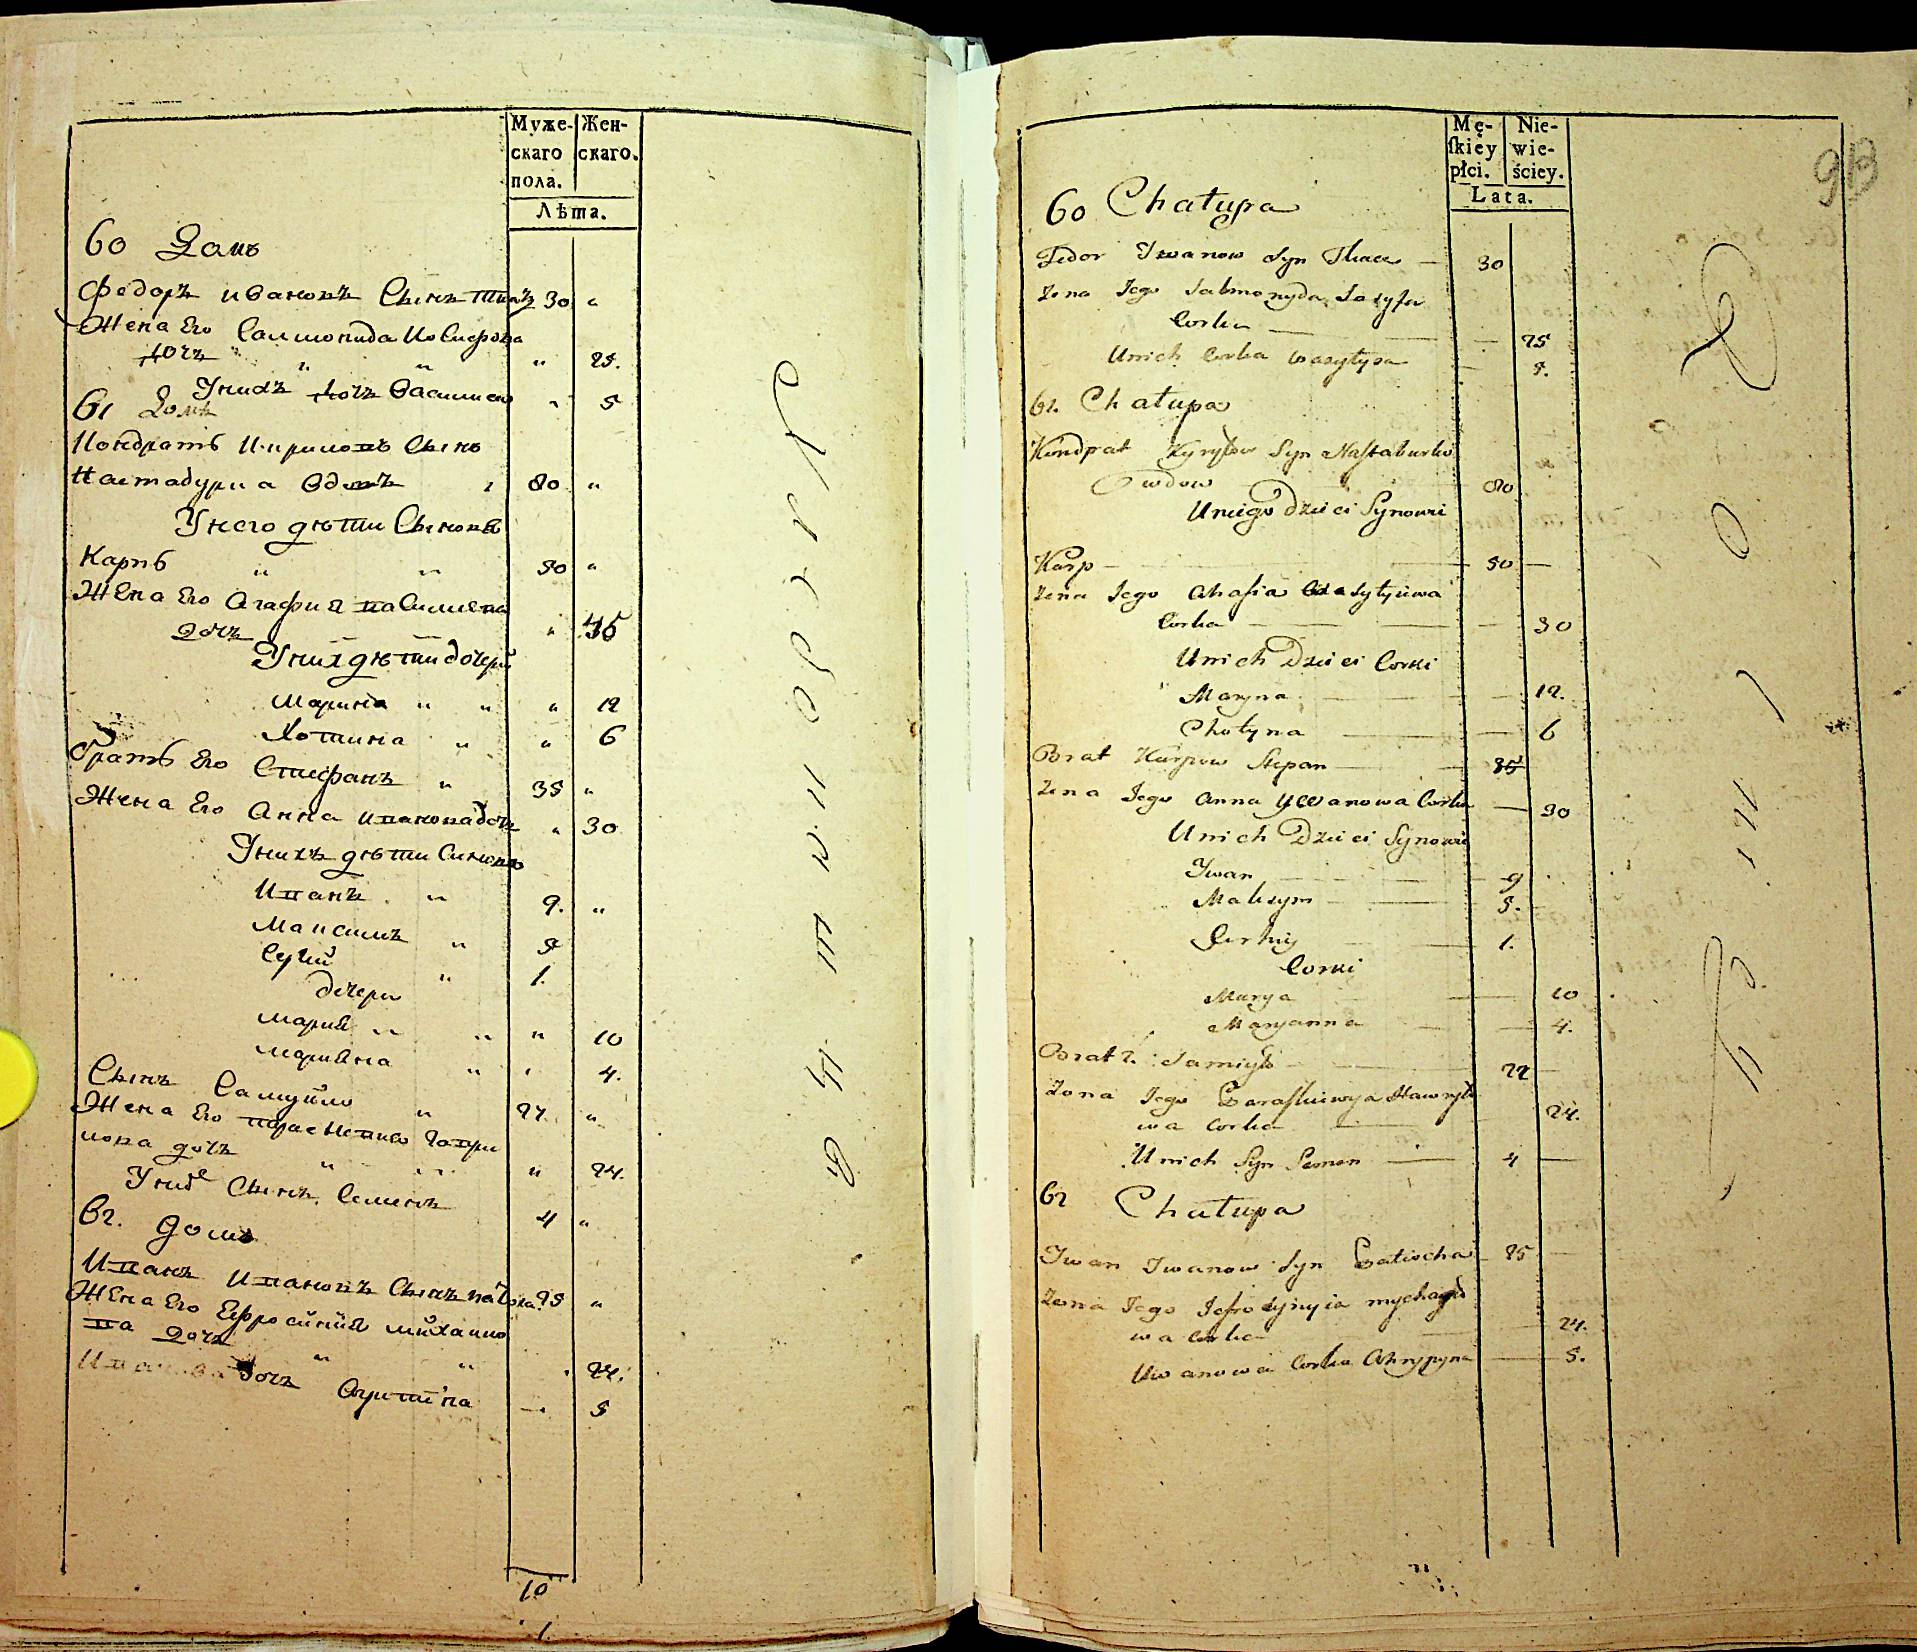 Муже-
скаго
пола.
Жен-
скаго.
Лѣта.
60 Домъ
Федоръ Ивановъ Сынъ Ткачъ 30 "
Жена Его Салмонида Иосифова
дочъ " " " 25.
Унихъ дочъ Василиса " 5
61 Домъ
Кондратъ Кириловъ Сынъ
Настабурка Вдовъ 80 "
Унего дѣти Сыновя
Карпъ " " 50 "
Жена Его Агафия Василиева
дочъ " 45
Унихъ дѣти дочери
Марина " " " 12
Хотина " " 6
братъ Его Стефанъ " 35 "
Жена Его Анна Иванова дочъ " 30
Унихъ дѣти Синовя
Иванъ " 9. "
Максимъ " 5
Сергий " 1.
дочери
Мария " " " 10
Марияна " " 4.
Сынъ Самуйло " 22 "
Жена Его Параскевия Гаври
лова дочъ " " " 24.
Унихъ Сынъ Семенъ 4 "
62. домъ
Иванъ Ивановъ Сынъ 25 "
Жена Его Ефросиния Михаило
ва дочъ " " " 24.
дочъ 5
10
1
подданный
93
Mę-
ſkiey
płci.
Nie-
wie-
ściey.
Lata.
60 Chałupa
Fedor Iwanow Syn Tkacz — 30
Zona Jego Salmonyda Jozyfa
Corka — 25
Unich Corka Wasylysa — 5.
61. Chałupa
Kondrat Kyryłow Syn Naſtaburka
Wdow 80
Uniego Dzieci Synowi
Karp — 50 —
Zona Jego Ahafia Wasylyiowa
Corka — 30
Unich Dzieci Corki
Maryna — 12.
Chotyna — 6
Brat Karpow Stepan — 35
Zona Jego Anna Ywanowa Corka — 30
Unich Dzieci Synowie
Iwan — 9
Maksym — 5.
Serhiy — 1.
Corki
Marya — 10
Maryanna — 4.
Brat 2. Samiyło — 22 —
Zona Jego Paraſkiewya Hawryło
wa Corka — 24.
Unich Syn Semen — 4 —
62 Chałupa
Iwan Iwanow Syn 25 —
Zona Jego Jefrozynyia Mychayło
wa Corka — 24.
Iwanowa Corka Ahrypyna — 5.